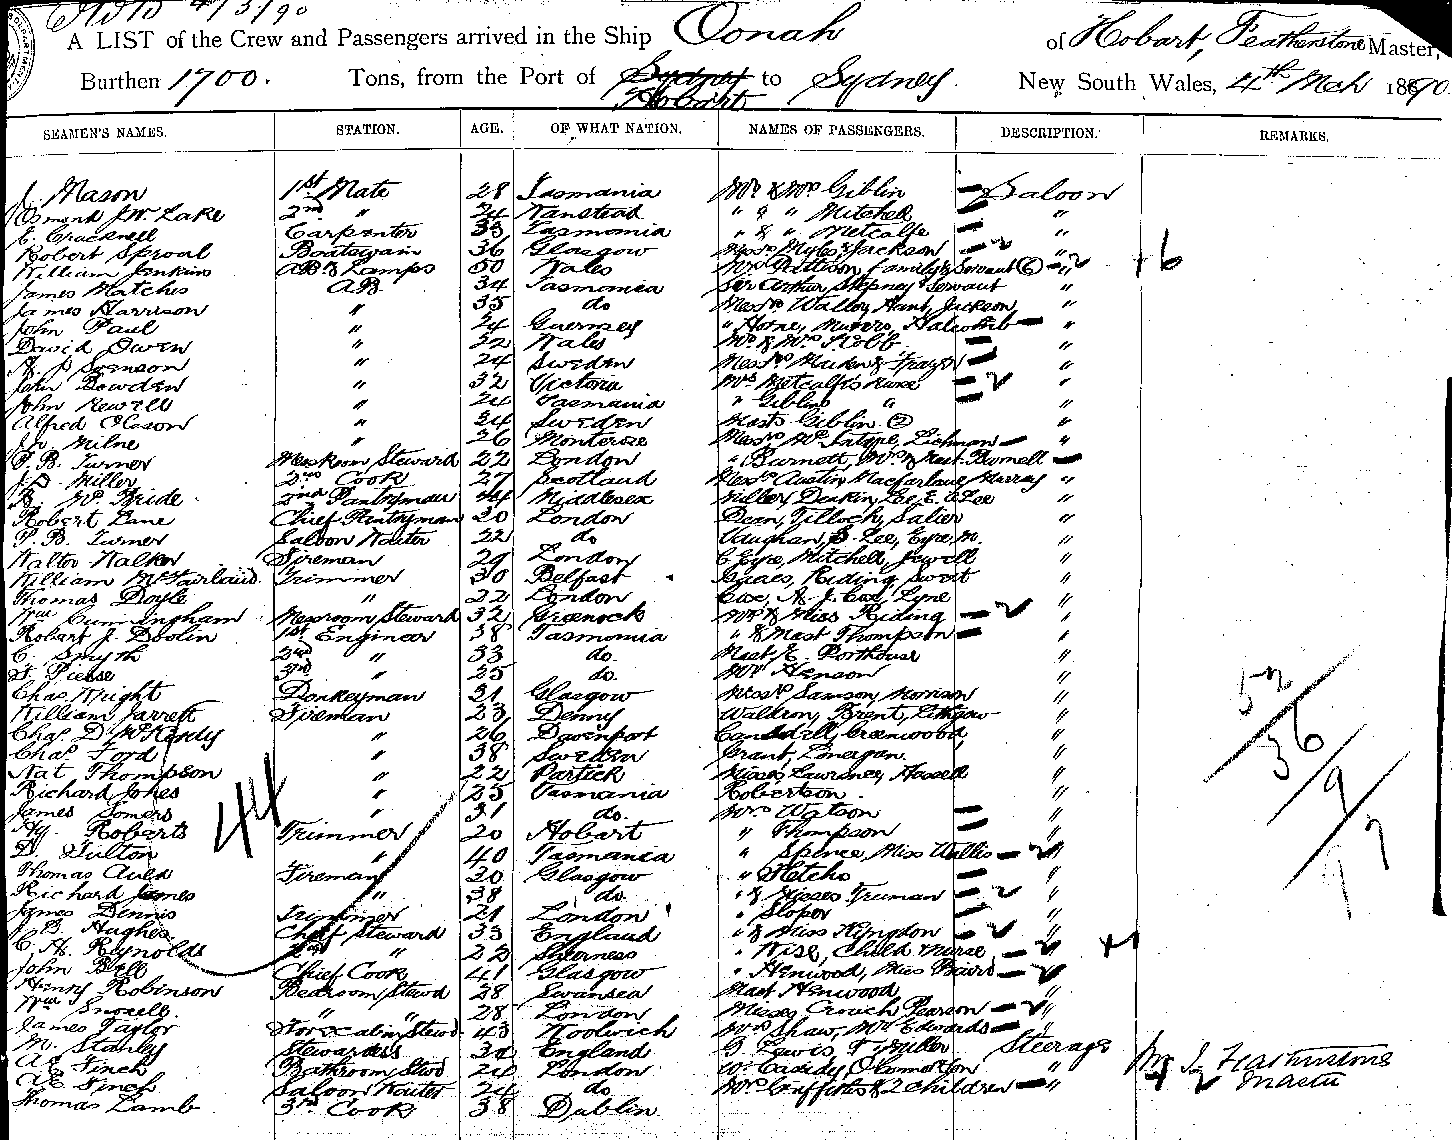 4/3/90
A LIST of the Crew and Passengers arrived in the Ship Oonah of Hobart, Featherstone Master,
Burthen 1700. Tons, from the Port of Sydney Hobart to Sydney. New South Wales, 4th Mch 1890
SEAMEN'S NAMES. STATION. AGE. OF WHAT NATION. NAMES OF PASSENGERS. DESCRIPTION. REMARKS.
J. Mason 1st Mate 28 Tasmania Mr & Mrs Giblin — Saloon
Osmond J.W. Lake 2nd " 24 Wanstead " & " Mitchell — "
Cracknell Carpenter 33 Tasmania " & " Metcalfe — "
Robert Sproal Boatswain 36 Glasgow Messrs Myles & Jackson — 2 "
William Jenkins AB & Lamps 50 Wales Mrs Pattison family & Servant (6) — 2 " + 6
James Matches AB 34 Tasmania Sir Arthur Stepney & Servant "
James Harrison " 35 do Messrs Walloy, Hant, Jackson, "
John Paul " 24 Guernsey " Horne, Munro, Halcomb — "
David Owen " 22 Wales Mr & Mrs Robb — "
Svenson " 24 Sweden Messrs & Frazer — "
John Bowden " 32 Victoria Mrs Metcalfe's Nurse — 2 "
John Rewell " 24 Tasmania " Giblins " — "
Alfred Olason " 34 Sweden Masts Giblin (2) "
Milne " 26 Monterose Messrs McIntyre, Lichman — "
P. B. Turner Messroom Steward 22 London " Burnett, Mrs & Mast. Burnell — "
Miller 2nd Cook 27 Scotland Messrs Austin Macfarlane Murray "
McBride 2nd Pantryman 44 Middlesex Miller, Deakin, Lee, E. C. Lee "
Robert Lane Chief Pantryman 30 London Dean, Tilloch, Salier "
P. B. Turner Saloon Waiter 22 do Vaughan, S. Lee, Eyre, M. "
Walter Walker Fireman 29 London C. Eyre, Mitchell, Jewell "
William McFarland Trimmer 30 Belfast Isaacs, Riding, Swet "
Thomas Doyle " 22 London Cox, A. J. Cox, Lyne "
Wm Cunningham Messroom Steward 32 Greenock Mrs & Miss Riding — 2 "
Robert J. Doolin 1st Engineer 38 Tasmania " & Mast Thompson — "
C. Smyth 2nd " 33 do. Mast E. Porthouse "
F. Piesse 3rd " 25 do. Mrs Henson "
Chas Wright Donkeyman 31 Glasgow Messrs Samson, Morrison "
William Jarrett Fireman 23 Denny Waldron, Brent, Lithgow "
Chas. D. McKendy " 26 Davenport Greenwood, "
Chas. Ford " 38 Sweden Grant, Lonegan. "
Nat Thompson " 22 Partick Misses Lawrence, Hassell "
Richard Jones " 25 Tasmania Robertson. "
James Somers " 31 do. Mrs Watson — "
Hy. Roberts Trimmer 20 Hobart " Thompson — "
D. Tilton " 40 Tasmania " Spence, Miss Wallis — 2 "
Thomas Auld Fireman 30 Glasgow " — "
Richard James " 38 do. " & Misses Truman — 2 "
James Dennis Trimmer 21 London " Sloper — "
J. B. Hughes Chief Steward 33 England " & Miss Kingdon — 2 "
C. H. Reynolds 2nd " 22 Sheerness " Wise, Child & Nurse — 2 " + 1
John Bell Chief Cook 41 Glasgow " Henwood, Miss Baird — 2 "
Henry Robinson Bedroom Stewd 28 Swansea Mast Henwood "
Wm Snosell " " 28 London Misses Crouch, Pearson — 2 "
James Taylor Forecabin Stewd 43 Woolwich Mrs Shaw, Mrs Edwards — "
M. Stanley Stewardess 32 England G. Lewis F. Miller Steerage
A E Finch Bathroom Stwd 24 London W. Cassidy, "
A E Finch Saloon Waiter 24 do Mrs Griffiths & 2 Children — "
Thomas Lamb 3rd Cook 38 Dublin
44
52
36
9
97
Featherstone
Master